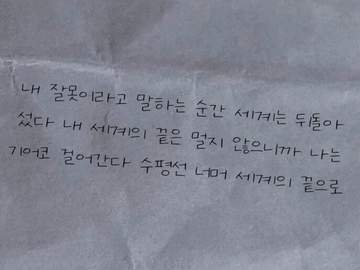 내 잘못이라고 말하는 순간 세계는 뒤돌아
섰다 내 세계의 끝은 멀지 않으니까 나는
기어코 걸어간다 수평선 너머 세계의 끝으로